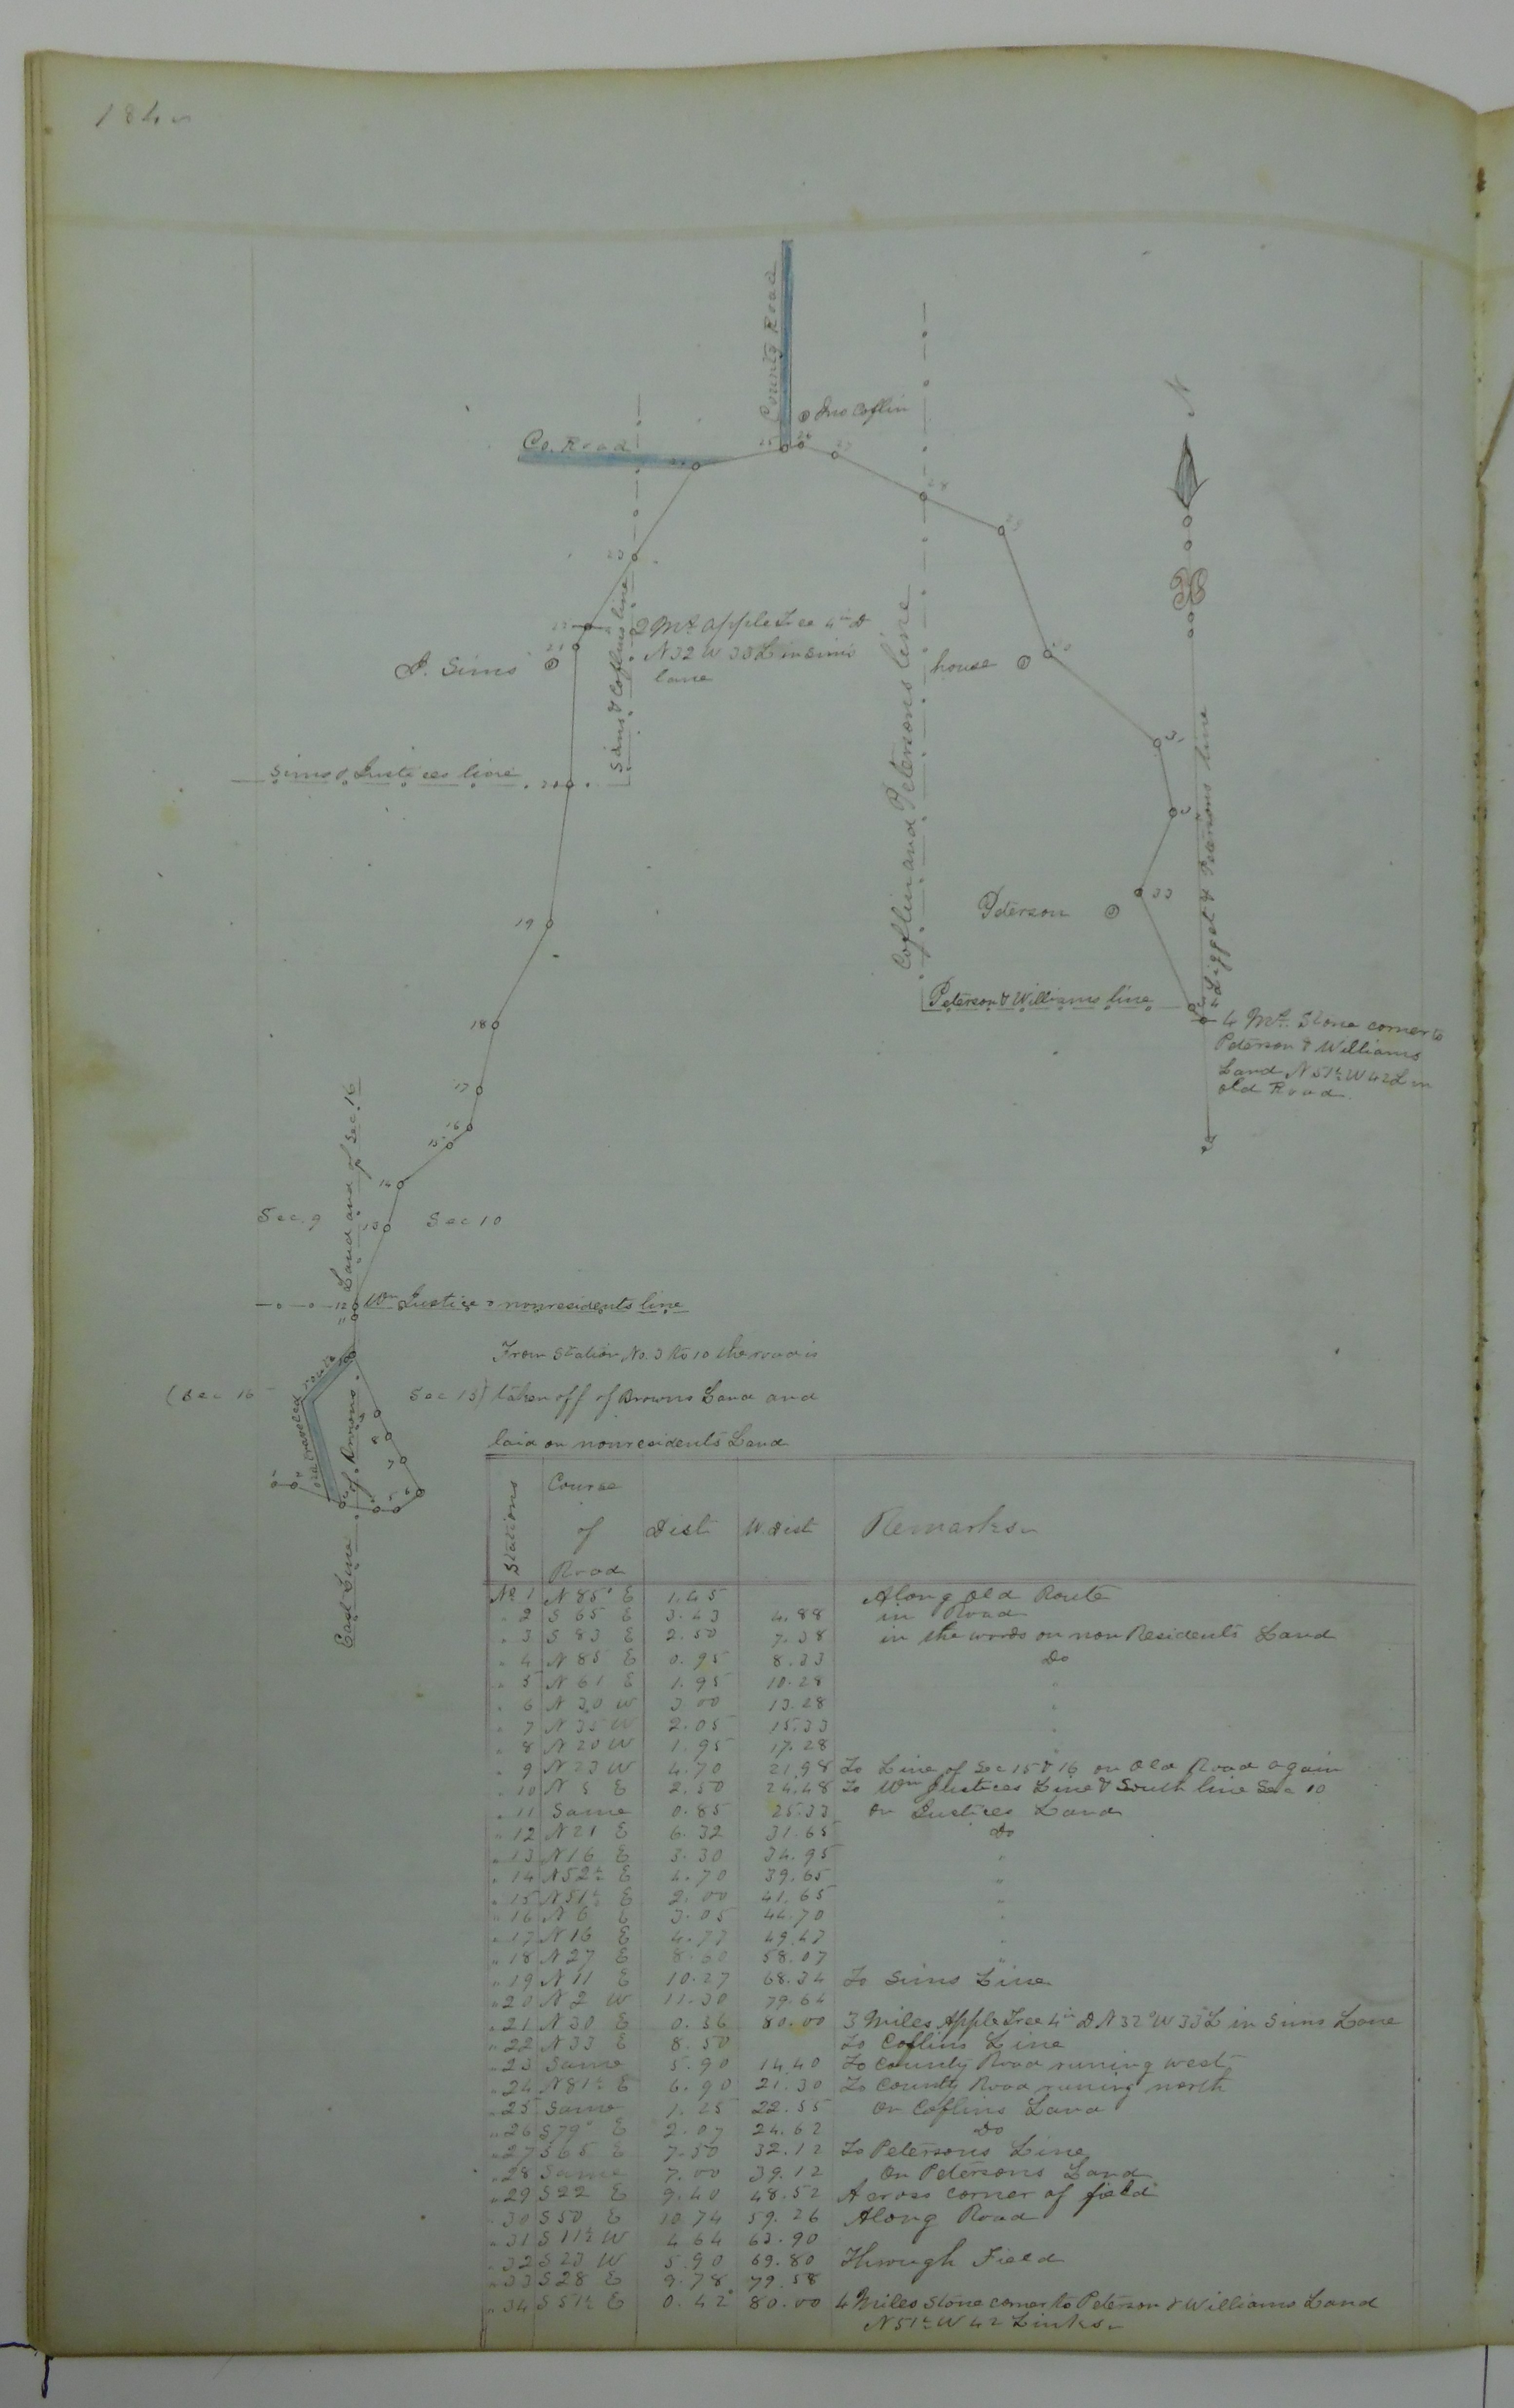 184
County Road
Jno Coflin
Co. Road
25
26
27
28
N
24
29
23
36
22
3 Ms. Apple Tree 4in D
N 32 W 33 L in Sims
lane
21
J. Sims
Sims & Coflins line
house
30
Coflin and Petersons line
31
Sims & Justices line
20
32
Ligget & Petersons line
Peterson
33
19
Peterson & Williams line
34
4 Ms. Stone corner to
Peterson & Williams
Land N 51½ W 42 L in
old Road
18
17
16
15
14
Land and of Sec. 16
Sec. 9
13
Sec 10
12
Wm Justice & nonresidents line
11
10
From Station No. 3 to 10 the road is
(Sec 16
Sec 15) taken off of Browns Land and
laid on nonresidents Land
old traveled route
East Line of Browns
9
8
7
6
5
Stations
Course of Road
Dist
W. Dist
Remarks
No 1 N 85° E 1.45 Along Old Route
" 2 S 65 E 3.43 4.88 in Road
" 3 S 83 E 2.50 7.38 in the woods on non Residents Land
" 4 N 85 E 0.95 8.33 Do
" 5 N 61 E 1.95 10.28 "
" 6 N 30 W 3.00 13.28 "
" 7 N 35 W 2.05 15.33 "
" 8 N 20 W 1.95 17.28 "
" 9 N 23 W 4.70 21.98 To Line of Sec 15 & 16 on Old Road again
" 10 N 5 E 2.50 24.48 To Wm Justices Line & South line Sec 10
" 11 Same 0.85 25.33 On Justices Land
" 12 N 21 E 6.32 31.65 Do
" 13 N 16 E 3.30 34.95 "
" 14 N 52½ E 4.70 39.65 "
" 15 N 51½ E 2.00 41.65 "
" 16 N 6 E 3.05 44.70 "
" 17 N 16 E 4.77 49.47 "
" 18 N 27 E 8.60 58.07 "
" 19 N 11 E 10.27 68.34 To Sims Line
" 20 N 2 W 11.30 79.64
" 21 N 30 E 0.36 80.00 3 Miles Apple Tree 4in D N 32° W 33 L in Sims Lane
" 22 N 33 E 8.50 To Coflins Line
" 23 Same 5.90 14.40 To County Road runing west
" 24 N 81½ E 6.90 21.30 To County Road runing north
" 25 Same 1.25 22.55 On Coflins Land
" 26 S 79° E 2.07 24.62 Do
" 27 S 65 E 7.50 32.12 To Petersons Line
" 28 Same 7.00 39.12 On Petersons Land
" 29 S 22 E 9.40 48.52 Across corner of field
" 30 S 50 E 10.74 59.26 Along Road
" 31 S 11½ W 4.64 63.90
" 32 S 23 W 5.90 69.80 Through Field
" 33 S 28 E 9.78 79.58
" 34 S 51½ E 0.42 80.00 4 Miles Stone corner to Peterson & Williams Land
N 51½ W 42 Links